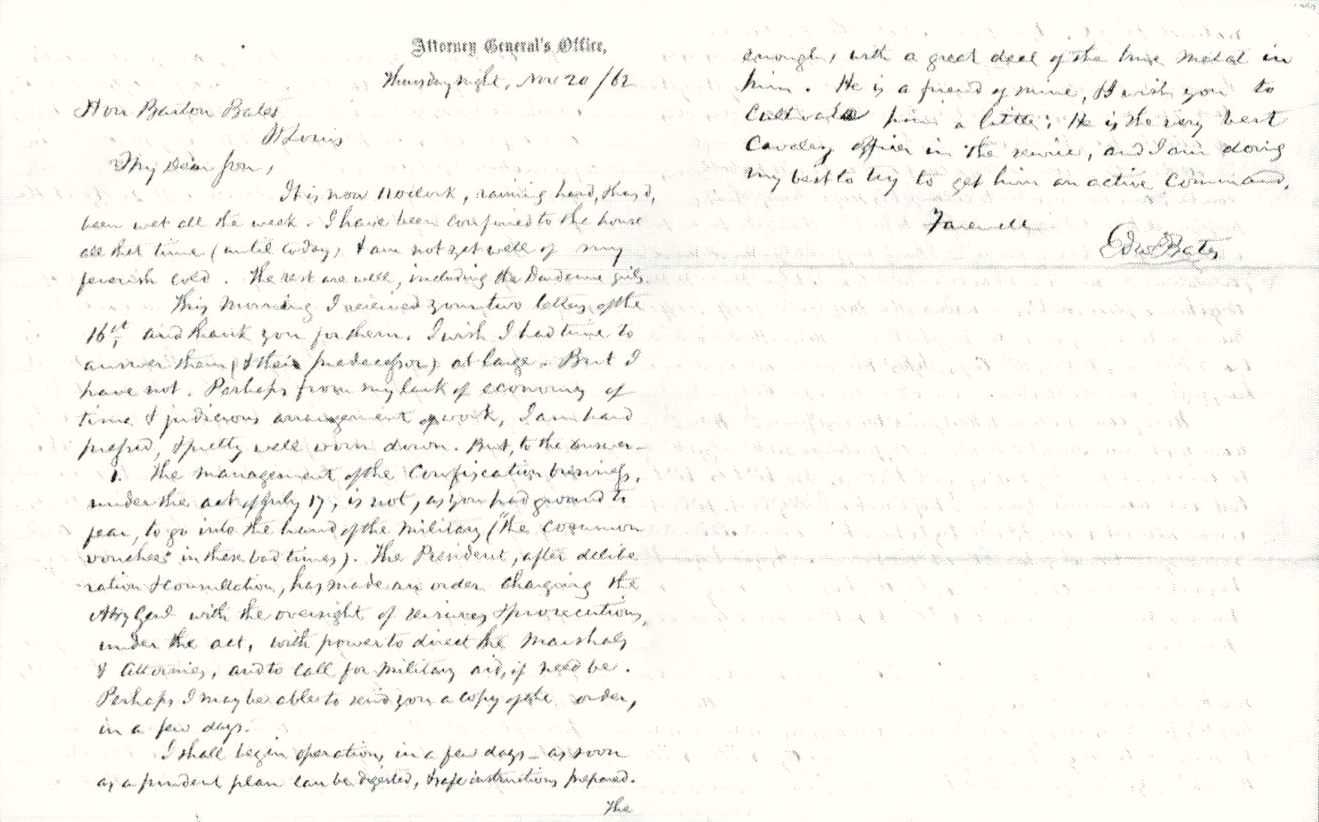 Attorney General's Office,
Thursday night, Nov 20/62
Hon Barton Bates
St Louis
My dear Son,
It is now 11 oclock, raining hard, & has,
been wet all the week. I have been confined to the house
all that time (until today) I am not yet well of my
feverish cold. The rest are well, including the girls
This morning I received your two letters of the
16st. and thank you for them. I wish I had time to
answer them (& their predecessor) at large. But I
have not. Perhaps from my lack of economy of
time & judicious arrangement of work, I am hard
pressed, & pretty well worn down. But, to the answer—
1. The management of the Confiscation business,
under the act of July 17, is not, as you had ground to
fear, to go into the hand of the Military ("the common
vouchee" in these bad times). The President, after delibe
ration & consultation, has made an order charging the
Atty Genl with the oversight of seizures & prosecutions,
under the act, with power to direct the Marshals
& Attornies, and to call for military aid, if need be.
Perhaps I may be able to send you a copy of the order,
in a few days.
I shall begin operations, in a few days— as soon
as a prudent plan can be digested, & safe instructions prepared.
The
enough, with a great deel of the true metal in
him. He is a friend of mine, & I wish you to
Cultivate him a little; He is the very best
Cavalry officer in the service, and I am doing
my best to try to get him an active Command.
Farewell
Edw. Bates